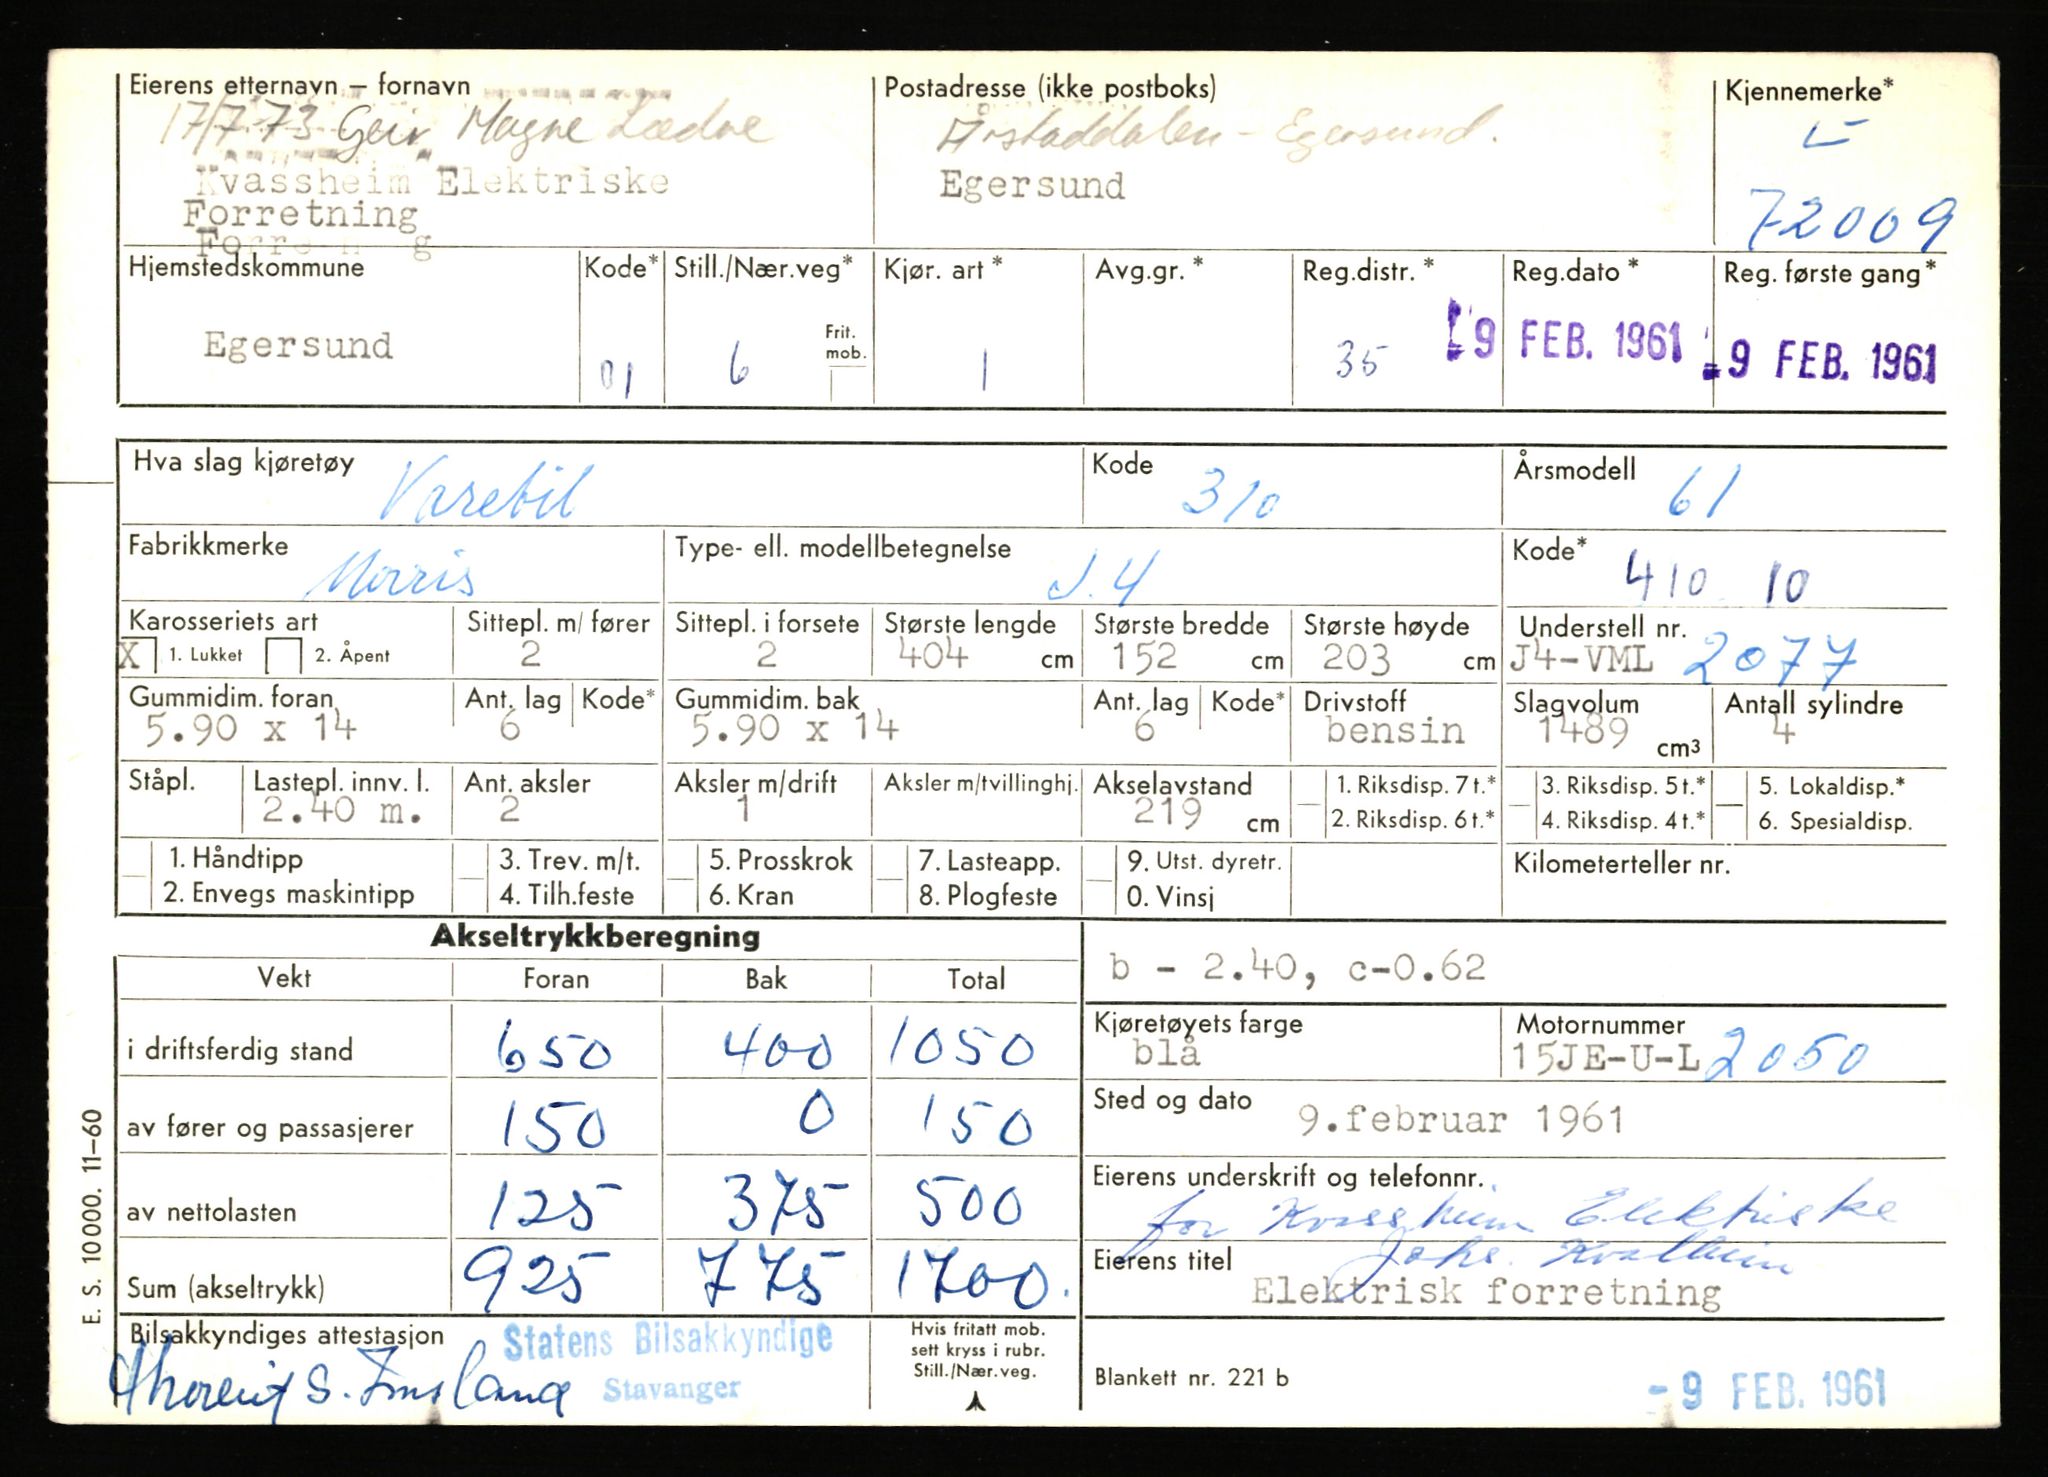 Eierens etternavn – fornavn
17/7-73 Geir Magne
Kvassheim Elektriske
Forretning
Postadresse (ikke postboks)
Årstaddalen - Egersund.
Egersund
Kjennemerke*
L
72009
Hjemstedskommune
Egersund
Kode*
01
Still./Nær.veg*
6
Frit.
mob.
Kjør. art *
1
Avg.gr. *
Reg.distr. *
35
Reg.dato *
9 FEB. 1961
Reg. første gang *
-9 FEB. 1961
Hva slag kjøretøy
Varebil
Kode
310
Årsmodell
61
Fabrikkmerke
Morris
Type- ell. modellbetegnelse
J.4
Kode*
410 10
Karosseriets art
X 1. Lukket 2. Åpent
Sittepl. m/ fører
2
Sittepl. i forsete
2
Største lengde
404 cm
Største bredde
152 cm
Største høyde
203 cm
Understell nr.
J4-VML 2077
Gummidim. foran
5.90 x 14
Ant. lag
6
Kode*
Gummidim. bak
5.90 x 14
Ant. lag
6
Kode*
Drivstoff
bensin
Slagvolum
1489 cm³
Antall sylindre
4
Ståpl.
Lastepl. innv. l.
2.40 m.
Ant. aksler
2
Aksler m/drift
1
Aksler m/tvillinghj.
Akselavstand
219 cm
1. Riksdisp. 7 t.*
2. Riksdisp. 6 t.*
3. Riksdisp. 5 t.*
4. Riksdisp. 4 t.*
5. Lokaldisp.*
6. Spesialdisp.
1. Håndtipp
2. Envegs maskintipp
3. Trev. m/t.
4. Tilh.feste
5. Prosskrok
6. Kran
7. Lasteapp.
8. Plogfeste
9. Utst. dyretr.
0. Vinsj
Kilometerteller nr.
Akseltrykkberegning
Vekt Foran Bak Total
i driftsferdig stand 650 400 1050
av fører og passasjerer 150 0 150
av nettolasten 125 375 500
Sum (akseltrykk) 925 775 1700.
b - 2.40, c-0.62
Kjøretøyets farge
blå
Motornummer
15JE-U-L 2050
Sted og dato
9.februar 1961
Eierens underskrift og telefonnr.
for Kvassheim Elektriske
Eierens titel
Elektrisk forretning
Bilsakkyndiges attestasjon
Statens Bilsakkyndige
Stavanger
Hvis fritatt mob.
sett kryss i rubr.
Still./Nær.veg.
Blankett nr. 221 b
-9 FEB. 1961
E. S. 10000. 11–60